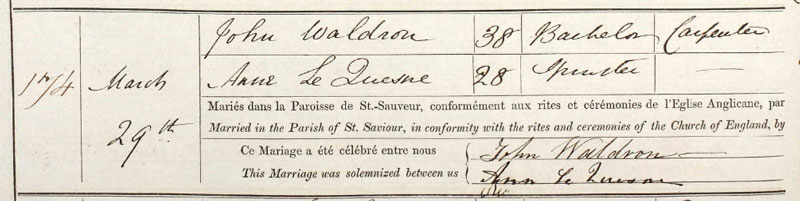 John Waldron 38 Bachelor Carpenter
1874 March Anne Le Quesne 28 Spinster —
29th
Mariés dans la Paroisse de St.-Sauveur, conformément aux rites et cérémonies de l'Eglise Anglicane, par
Married in the Parish of St. Saviour, in conformity with the rites and ceremonies of the Church of England, by
Ce Mariage a été célébré entre nous John Waldron
This Marriage was solemnized between us Ann Le Quesne